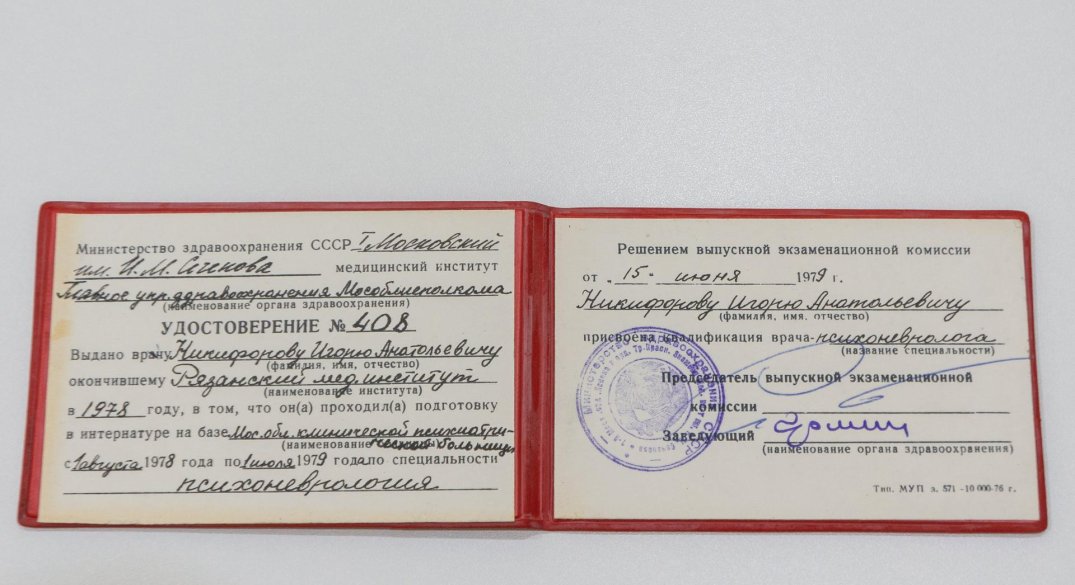 Министерство здравоохранения СССР I Московский
им. И. М. Сеченова медицинский институт
Главное упр. здравоохранения Мособлисполкома
(наименование органа здравоохранения)
УДОСТОВЕРЕНИЕ № 408
Выдано врачу Никифорову Игорю Анатольевичу
(фамилия, имя, отчество)
окончившему Рязанский мед. институт
(наименование института)
в 1978 году, в том, что он(а) проходил(а) подготовку
в интернатуре на базе Мос. обл. клинической психиатри-
(наименование ческой больницы
с 1 августа 1978 года по 1 июля 1979 года по специальности
психоневрология
Решением выпускной экзаменационной комиссии
от „15" июня 1979 г.
Никифорову Игорю Анатольевичу
(фамилия, имя, отчество)
присвоена квалификация врача-психоневролога
(название специальности)
Председатель выпускной экзаменационной
комиссии
Заведующий
(наименование органа здравоохранения)
Тип. МУП з. 571 -10 000-76 г.
Министерство здравоохранения СССР